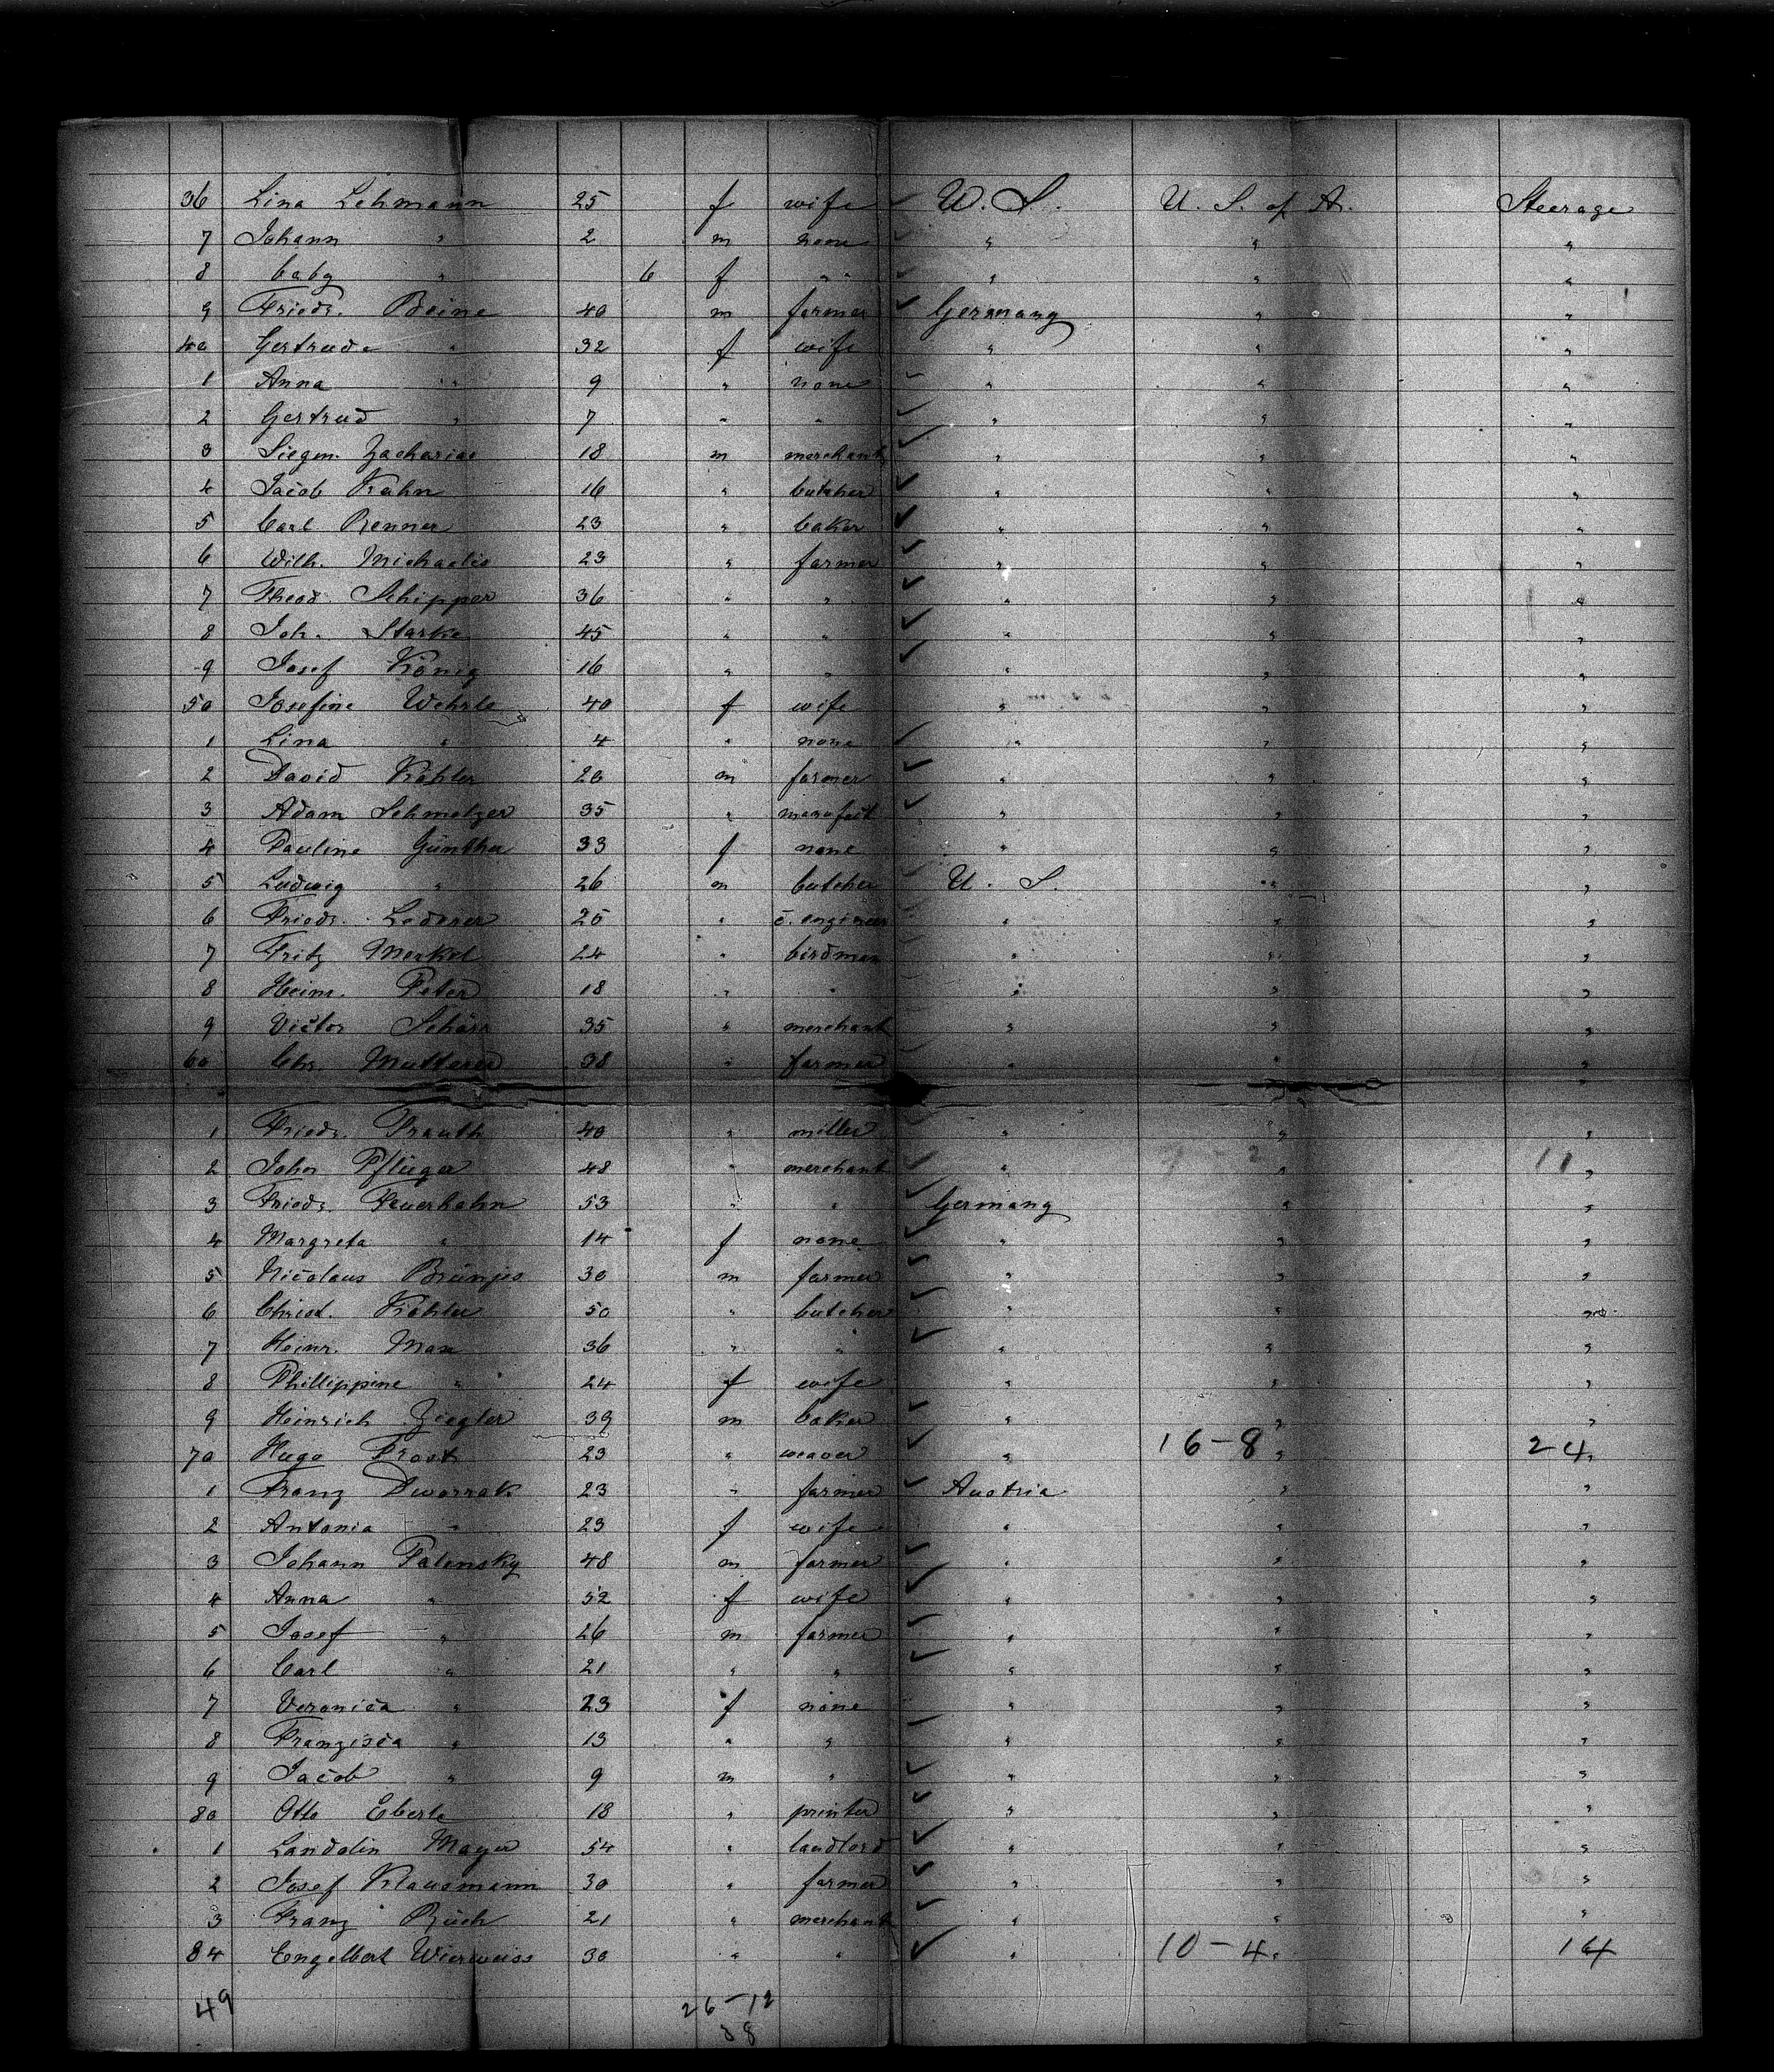 36 Lina Lehmann 25 f wife ✓ U. S. U. S. of A. Steerage
7 Johann " 2 m none ✓ " " "
8 baby " 6 f " " ✓ " " "
9 Friedr. Beine 40 m farmer ✓ Germany " "
40 Gertrude " 32 f wife " " "
1 Anna " 9 " none ✓ " " "
2 Gertrud " 7 " " ✓ " " "
3 Siegm. Zacharias 18 m merchant ✓ " " "
4 Jacob Kahn 16 " butcher ✓ " " "
5 Carl Renner 23 " baker ✓ " " "
6 Wilh. Michaelis 23 " farmer ✓ " " "
7 Theod. Schipper 36 " " ✓ " " "
8 Joh. Starke 45 " " ✓ " " "
9 Josef König 16 " " ✓ " " "
50 Josefine Wehrle 40 f wife " " "
1 Lina " 4 " none ✓ " " "
2 David Köhler 20 m farmer ✓ " " "
3 Adam Schmelzer 35 " manufact ✓ " " "
4 Pauline Günther 33 f none " " "
5 Ludwig " 26 m butcher U. S. " "
6 Friedr. Lederer 25 " c. engineer " " "
7 Fritz Merkel 24 " birdman " " "
8 Heinr. Peter 18 " " " " "
9 Victor Schärr 35 " merchant " " "
60 Chr. Mutterer 38 " farmer " " "
1 Friedr. Prauth 40 " miller " " "
2 John Pflüger 48 " merchant " " 11 "
3 Friedr. Feuerhahn 53 " " ✓ Germany " "
4 Margreta " 14 f none ✓ " " "
5 Nicolaus Brünjes 30 m farmer ✓ " " "
6 Christ. Köhler 50 " butcher ✓ " " "
7 Heinr. Max 36 " " ✓ " " "
8 Phillippine " 24 f wife " " "
9 Heinrich Ziegler 39 m baker ✓ " " "
70 Hugo Prost 23 " weaver ✓ " 16-8 " 24 "
1 Franz Dworrak 23 " farmer ✓ Austria " "
2 Antonia " 23 f wife " " "
3 Johann Palensky 48 m farmer ✓ " " "
4 Anna " 52 f wife ✓ " " "
5 Josef " 26 m farmer ✓ " " "
6 Carl " 21 " " ✓ " " "
7 Veronica " 23 f none " " "
8 Franzisca " 13 " " ✓ " " "
9 Jacob " 9 m " ✓ " " "
80 Otto Eberle 18 " printer ✓ " " "
1 Landolin Mayer 54 " landlord ✓ " " "
2 Josef Klausmann 30 " farmer ✓ " " "
3 Franz Rüch 21 " merchant ✓ " " "
84 Engelbert Wierweiss 30 " " ✓ " 10-4 " 14
49 26-12
38